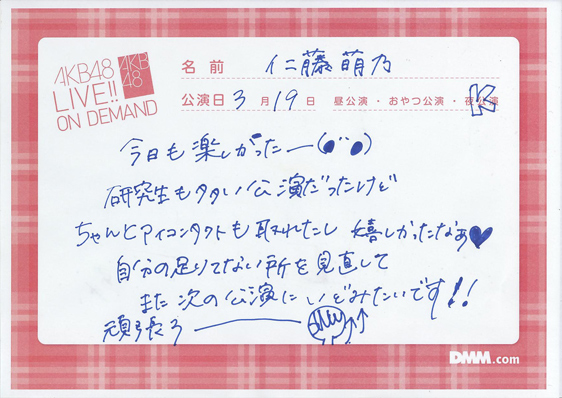 AKB48
LIVE!!
ON DEMAND
AKB
48
名前 仁藤萌乃
公演日 3月19日 昼公演・おやつ公演・夜公演
K
今日も楽しかったー(●¨●)
研究生も多い公演だったけど
ちゃんとアイコンタクトも取れたし 嬉しかったなぁ♥
自分の足りてない所を見直して
また次の公演にいどみたいです!!
頑張ろ
DMM.com